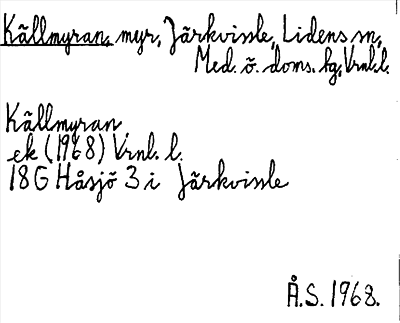 Källmyran, myr, Järkvissle, Lidens sn,
Med. ö. doms. hg, Vrnl. l.
Källmyran
ek (1968) Vrnl. l.
18G Håsjö 3 i Järkvissle
Å.S. 1968.